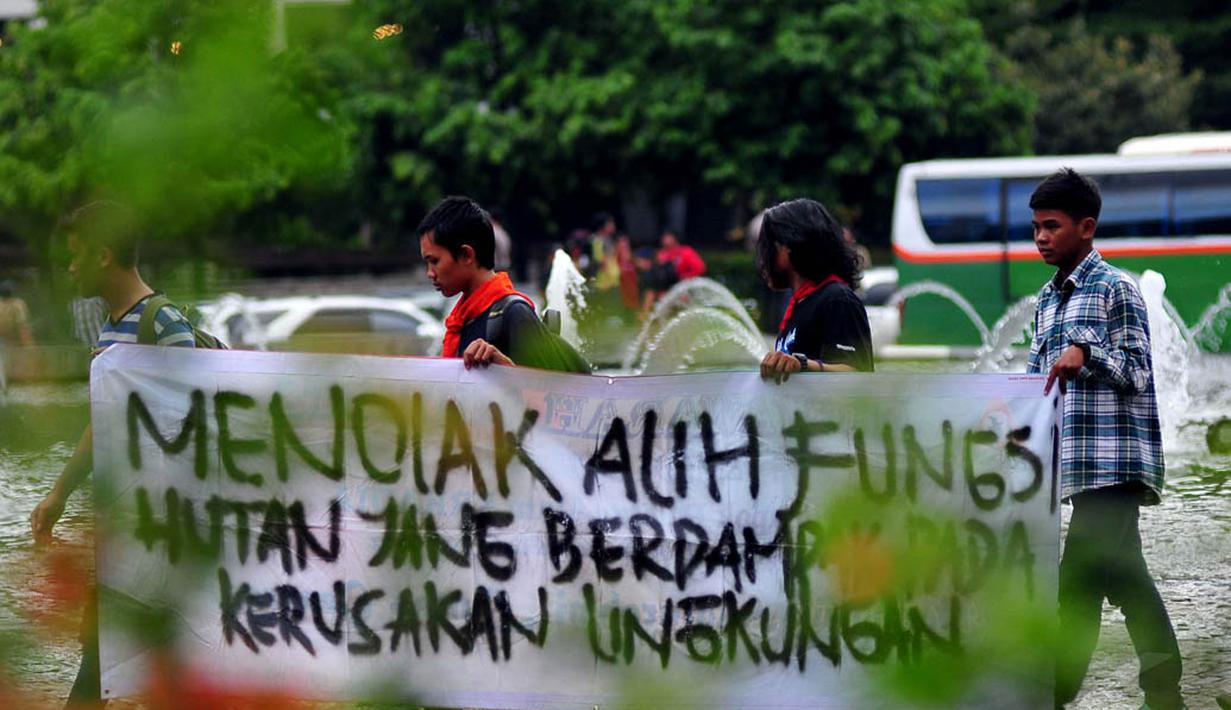 MENOLAK ALIH FUNGSI
HUTAN YANG BERDAMPAK PADA
KERUSAKAN LINGKUNGAN